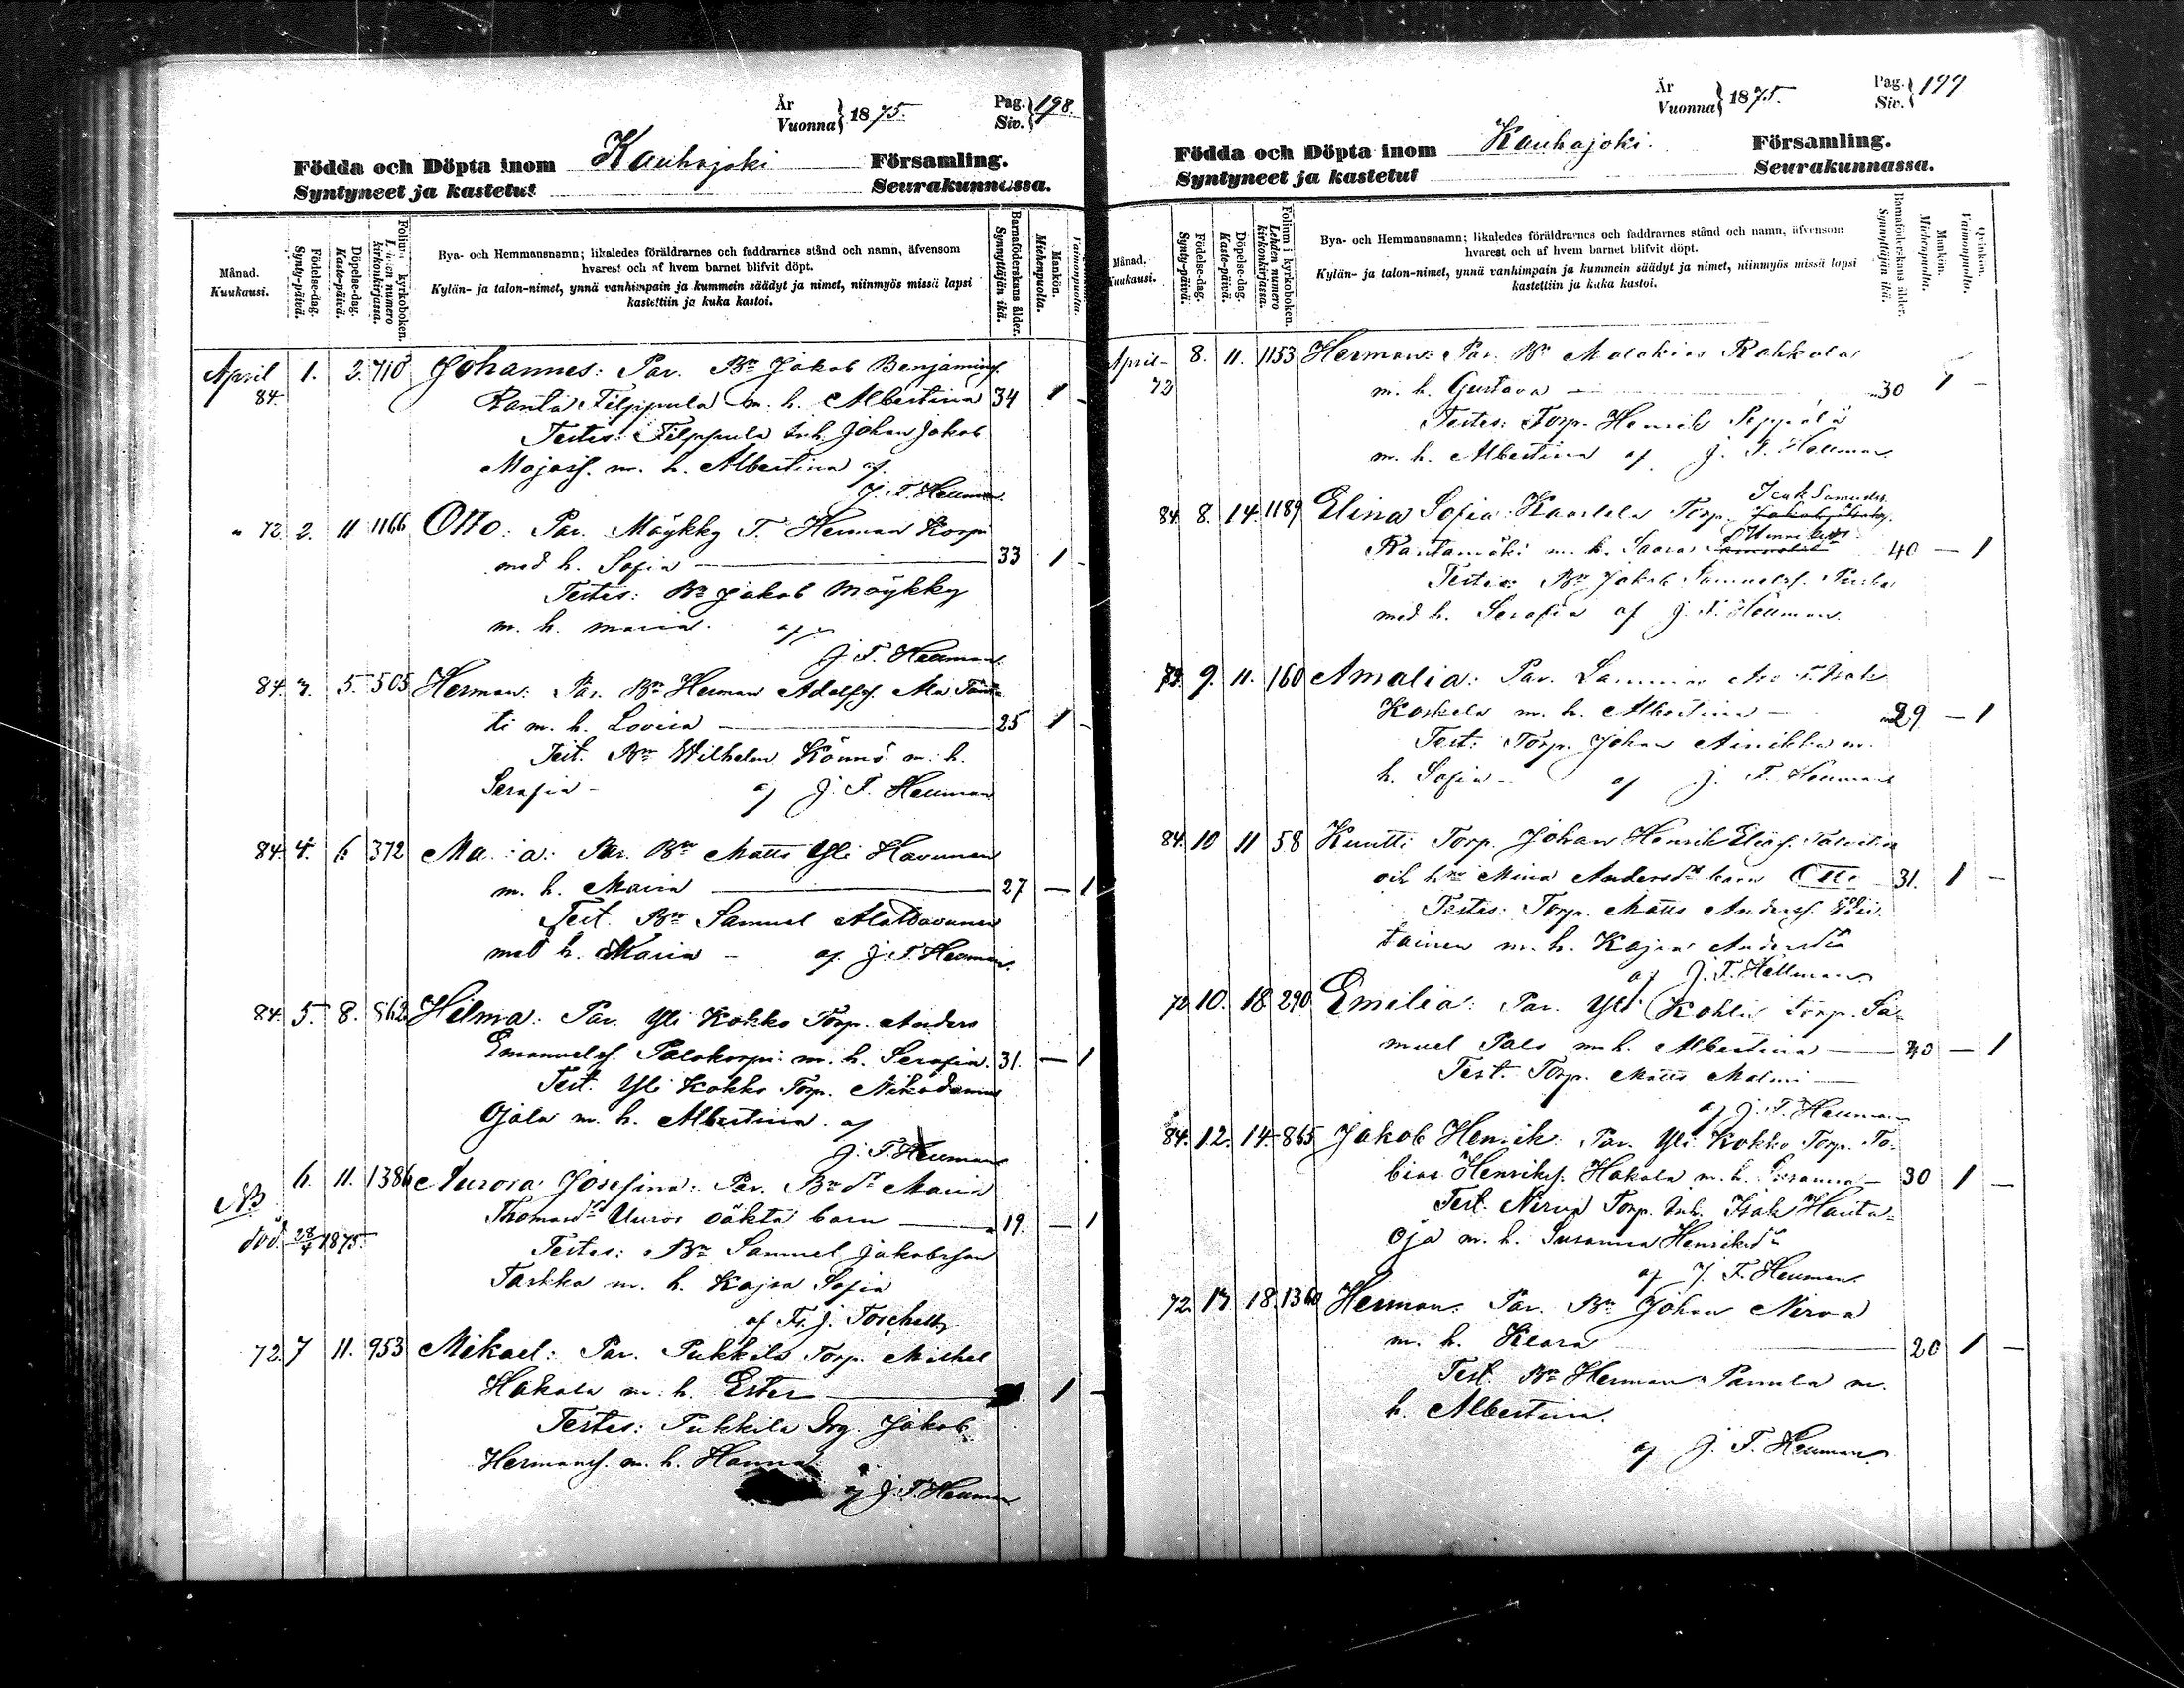 År
Vuonna } 1875.
Pag.
Siv. } 198.
Födda och Döpta inom Kauhajoki Församling.
Syntyneet ja kastetut Seurakunnassa.
Månad.
Kuukausi.
Födelse-dag.
Synty-päivä.
Döpelse-dag.
Kaste-päivä.
Folium i kyrkoboken.
Lehden numero kirkonkirjassa.
Bya- och Hemmansnamn; likaledes föräldrarnes och faddrarnes stånd och namn, äfvensom
hvarest och af hvem barnet blifvit döpt.
Kylän- ja talon-nimet, ynnä vanhimpain ja kummein säädyt ja nimet, niinmyös missä lapsi
kastettiin ja kuka kastoi.
Barnaföderskans ålder.
Synnyttäjän ikä.
Mankön.
Miehenpuolia.
Vaimonpuolia.
April 1. 2. 710 Johannes: Par. Bn Jakob Benjaminss.
84. Ranta Filppula m. h. Albertina 34 1 -
Testes: Filppula Inh. Johan Jakob
m. h. Albertina af
J. T. Hellman
" 72. 2. 11 1166 Otto: Par. Möykky T. Herman Korpi
med h. Sofia 33 1 -
Testes: Bn Jakob Möykky
m. h. Maria. af
J. T. Hellman.
84. 3. 5. 505 Herman: Par. Bn Herman Adolfss.
ti m. h. Lovisa 25 1 -
Test. Bn Wilhelm Könnö m. h.
Serafia - af J. T. Hellman
84. 4. 6 372 Par. Bn Matts Yli Havunen
m. h. Maria 27 - 1
Test. Bn Samuel Ala Havunen
med h. Maria - af J. T. Hellman.
84. 5. 8. 862 Hilma: Par. Yli Kokko Torp. Anders
Emanuelss. Palokorpi m. h. Serafia. 31. - 1
Test. Yli Kokko Torp. Nikodemus
Ojala m. h. Albertina af
J. T. Hellman
6. 11. 1386 Aurora Josefina: Par. Bn dr Maria
NB Thomasdr oäkta barn 19. - 1
död 28/4 1875. Testes: Bn Samuel Jakobsson
m. h. Kajsa Sofia
af Fr. J.
72. 7 11. 953 Mikael: Par. Pukkila Torp. Mikhel
Hakala m. h. Ester 1 -
Testes: Pukkila Jakob
Hermanss. m. h. Hanna
af J. T. Hellman
År
Vuonna } 1875.
Pag.
Siv. } 199
Födda och Döpta inom Kauhajoki. Församling.
Syntyneet ja kastetut Seurakunnassa.
Månad.
Kuukausi.
Födelse-dag.
Synty-päivä.
Döpelse-dag.
Kaste-päivä.
Folium i kyrkoboken.
Lehden numero kirkonkirjassa.
Bya- och Hemmansnamn; likaledes föräldrarnes och faddrarnes stånd och namn, äfvensom
hvarest och af hvem barnet blifvit döpt.
Kylän- ja talon-nimet, ynnä vanhimpain ja kummein säädyt ja nimet, niinmyös missä lapsi
kastettiin ja kuka kastoi.
Barnaföderskans ålder.
Synnyttäjän ikä.
Mankön.
Miehenpuolia.
Qvinkön.
Vaimonpuolia.
April 8. 11. 1153 Herman: Par. Bn Malakias Rahkola
72 m. h. Gustava - 30 1 -
Testes: Torp. Henrik Seppälä
m. h. Albertina af J. T. Hellman.
Isak Samuelss.
84. 8. 14. 1189 Elina Sofia: Kaarlela Torp.
Rantamäki m. h. Saara 40 - 1
Testes: Bn Jakob Samuelss.
med h. Serafia af J. T. Hellman.
73. 9. 11. 160 Amalia: Par.
Koskela m. h. Albertina - 29 - 1
Test: Torp. Johan m.
h. Sofia - af J. T. Hellman
84. 10 11 58 Kuntti Torp. Johan Henrik Eliass.
och hu Mina Andersdr barn Otto 31. 1 -
Testes: Torp. Matts Anderss.
tainen m. h. Kajsa Andersdr
af J. T. Hellman
72 10. 18 290 Emilia: Par. Yli Torp. Sa-
muel Palo m. h. Albertina 40 - 1
Test. Torp. Matts Malmi -
af J. T. Hellman
84. 12. 14. 865 Jakob Henrik: Par. Yli Kokko Torp. To-
bias Henrikss. Hakala m. h. Susanna - 30 1 -
Test. Torp. Inh. Isak Hauta-
oja m. h. Susanna Henriksdr
af J. T. Hellman.
72. 13 18. 1360 Herman: Par. Bn Johan Nirva
m. h. Klara 20 1 -
Test. Bn Herman Panula m.
h. Albertina.
af J. T. Hellman.